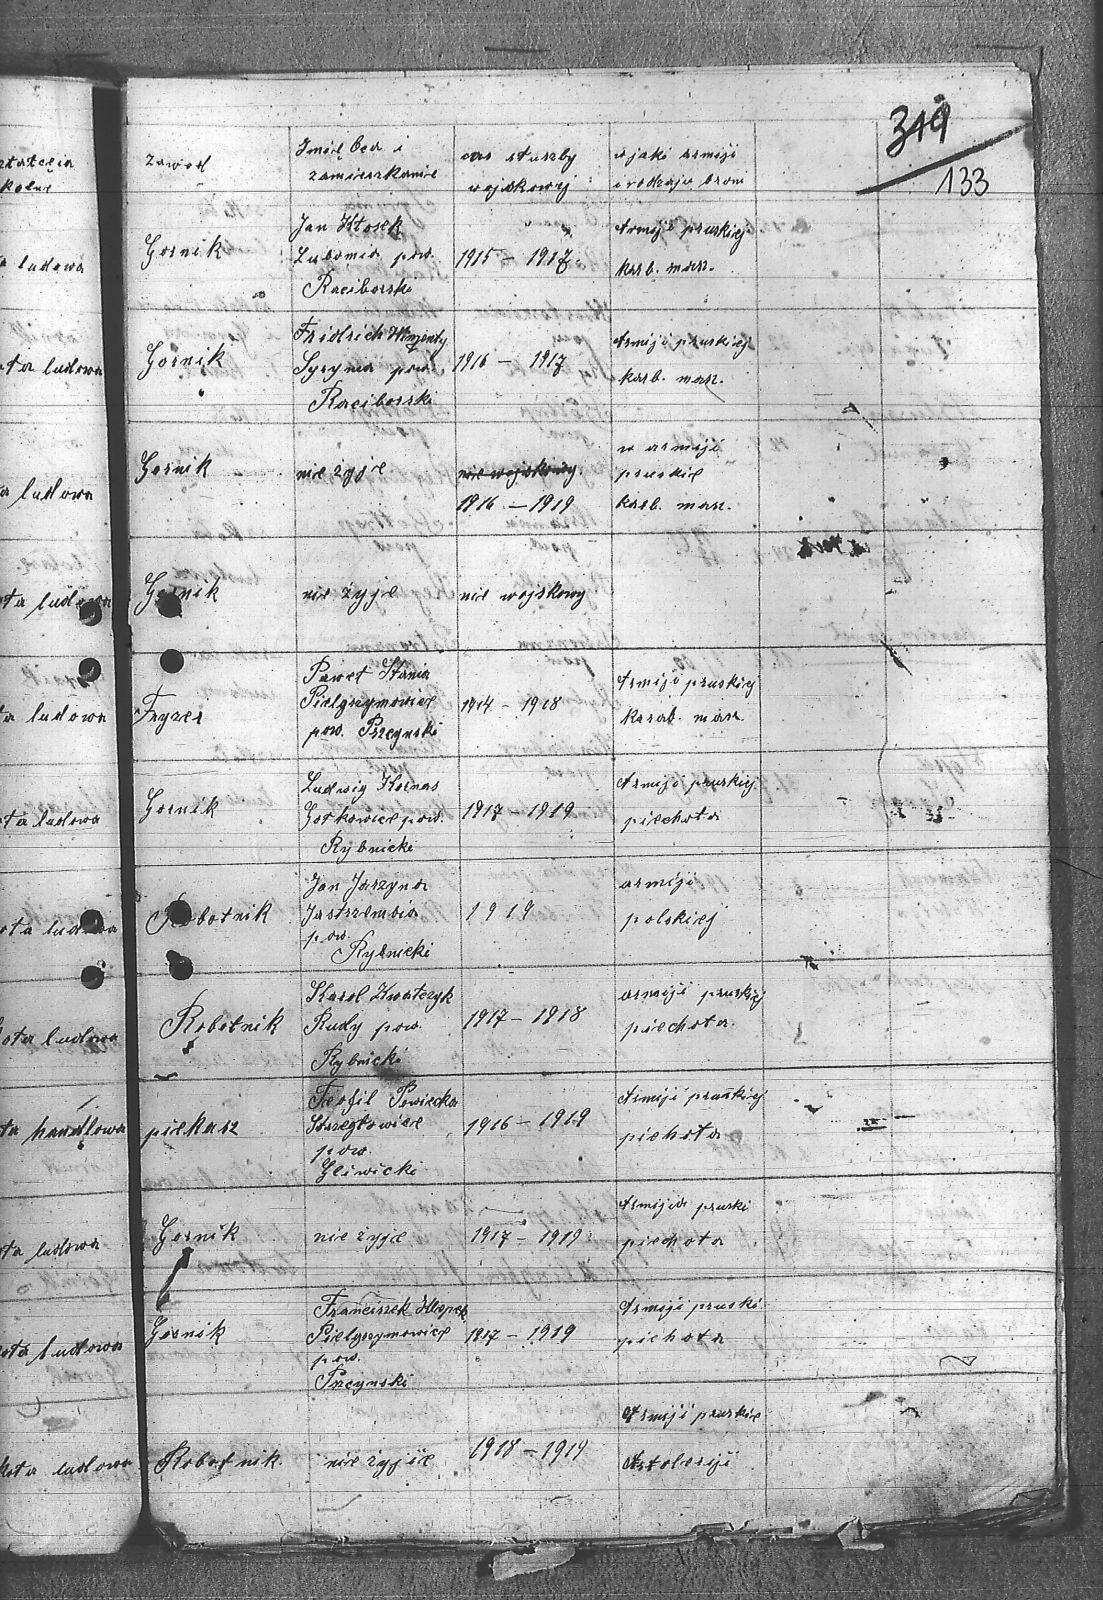 319
133
ztałcenia
zawod
Imię Ojca i
zamieszkanie
czas służby
wojskowej
w jaki armiji
i rodzaju broni
ludowa
Gornik
Jan Kłosek
Lubomia pow.
Raciborski
1915 – 1917
Armiji pruskiej
karb. masz.
ota ludowa
Gornik
Fridrich
Syrynia pow.
Raciborski
1916 – 1917
Armiji pruskiej
karb. masz.
a ludowa
Gornik
nie żyje
nie wojskowy
1916 – 1919
w armiji
pruskie
karb. masz.
ota ludowa
Gornik
nie żyje
nie wojskowy
ta ludowa
Fryzer
Paweł Stania
Pielgrzymowice
pow. Pszczynski
1914 – 1918
Armiji pruskiej
karab. masz
ota ludowa
Gornik
Ludwig Kornas
Gotkowice pow.
Rybnicki
1917 – 1919
Armiji pruskiej
piechota
ota ludowa
Robotnik
Jan Jarzyna
Jastrzembia
pow.
Rybnicki
1919
armiji
polskiej
ota ludowa
Robotnik
Karol Kwatczyk
Rudy pow.
Rybnicki
1917 – 1918
armiji pruskiej
piechota
ta handlowa
piekasz
Teofil Powiecka
pow.
Gliwicki
1916 – 1919
Armiji pruskiej
piechota
ota ludowa
Gornik
nie żyje
1917 – 1919
Armija pruski
piechota
ota ludowa
Gornik
Franciszek
Pielgrzymowice
pow.
Pszczynski
1917 – 1919
Armiji pruski
piechota
kota ludowa
Robotnik
nie żyjie
1918 – 1919
Armiji pruskie
Artoleriji